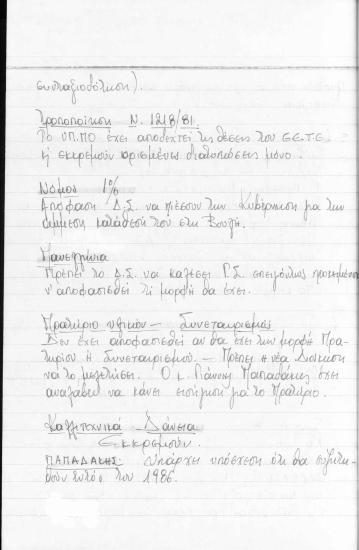 συνταξιοδότηση).
Τροποποίηση Ν. 1218/81.
Το ΥΠ.ΠΟ έχει αποδεχτεί τις θέσεις του Ε.Ε.Τ.Ε.
κ' εκκρεμούν ορισμένες διατυπώσεις μόνο.
Νόμος 1%
Απόφαση Δ.Σ. να πιέσουν την Κυβέρνηση για την
άμεση κατάθεσή του στη Βουλή.
Πανελλήνια
Πρέπει το Δ.Σ. να καλέσει Γ.Σ. επειγόντως προκειμένου
ν' αποφασισθεί τι μορφή θα έχει.
Πρατήριο υλικών - Συνεταιρισμός
Δεν έχει αποφασισθεί αν θα έχει την μορφή Πρα-
τηρίου ή Συνεταιρισμού. - Πρέπει η νέα Διοίκηση
να το μελετήσει. Ο κ. Γιάννης Παπαδάκης έχει
αναλάβει να κάνει εισήγηση για το Πρατήριο.
Καλλιτεχνικά Δάνεια
Εκκρεμούν.
ΠΑΠΑΔΑΚΗΣ: Υπάρχει υπόσχεση ότι θα συζητη-
θούν εντός του 1986.